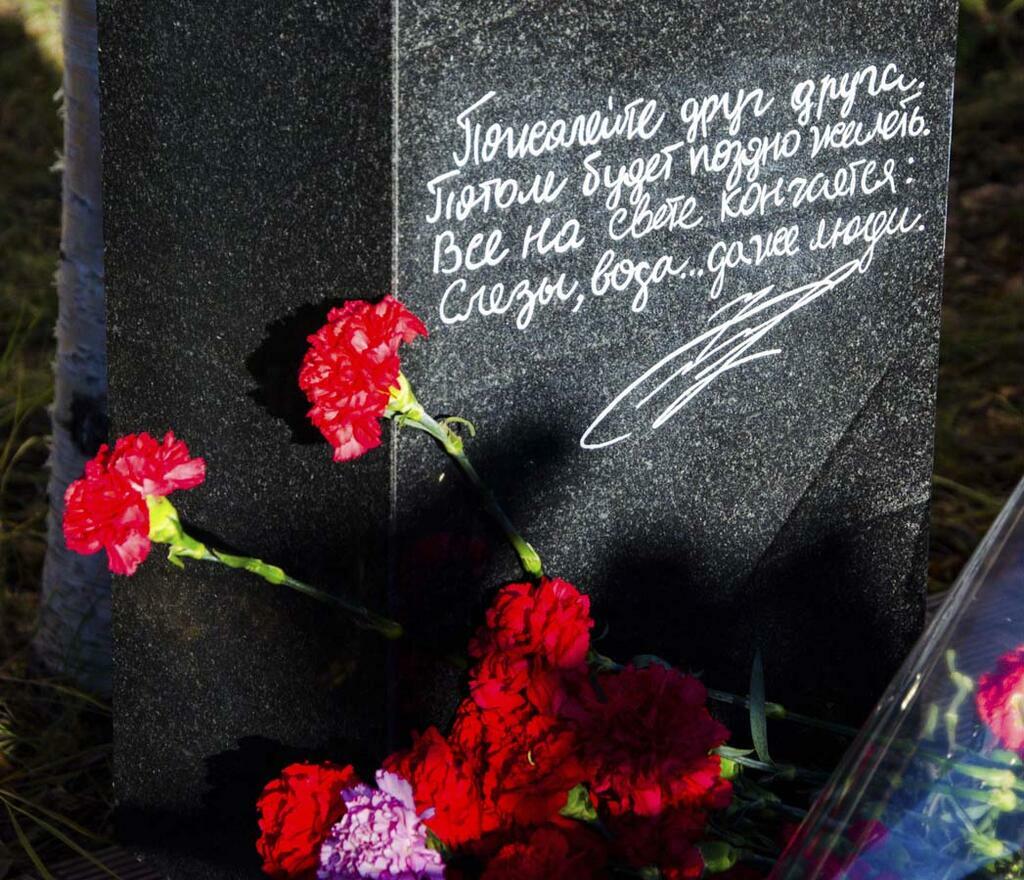 Пожалейте друг друга.
Потом будет поздно жалеть.
Все на свете кончается:
Слезы, вода... даже люди.